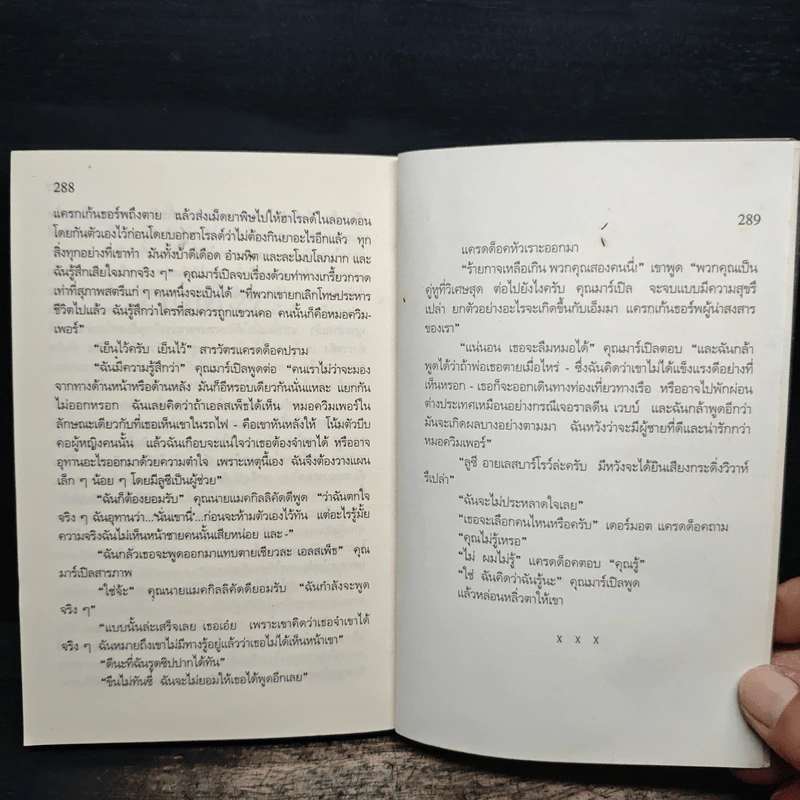 288
แครกเก้นธอร์พถึงตาย แล้วส่งเม็ดยาพิษไปให้ฮาโรลด์ในลอนดอน
โดยกันตัวเองไว้ก่อนโดยบอกฮาโรลด์ว่าไม่ต้องกินยาอะไรอีกแล้ว ทุก
สิ่งทุกอย่างที่เขาทำ มันทั้งบ้าดีเดือด อำมหิต และละโมบโลภมาก และ
ฉันรู้สึกเสียใจมากจริง ๆ” คุณมาร์เปิลจบเรื่องด้วยท่าทางเกรี้ยวกราด
เท่าที่สุภาพสตรีแก่ ๆ คนหนึ่งจะเป็นได้ “ที่พวกเขายกเลิกโทษประหาร
ชีวิตไปแล้ว ฉันรู้สึกว่าใครที่สมควรถูกแขวนคอ คนนั้นก็คือหมอควิม-
เพอร์”
“เย็นไว้ครับ เย็นไว้” สารวัตรแครดด็อคปราม
“ฉันมีความรู้สึกว่า” คุณมาร์เปิลพูดต่อ “คนเราไม่ว่าจะมอง
จากทางด้านหน้าหรือด้านหลัง มันก็อีหรอบเดียวกันนั่นแหละ แยกกัน
ไม่ออกหรอก ฉันเลยคิดว่าถ้าเอลสเพ็ธได้เห็น หมอควิมเพอร์ใน
ลักษณะเดียวกับที่เธอเห็นเขาในรถไฟ - คือเขาหันหลังให้ โน้มตัวบีบ
คอผู้หญิงคนนั้น แล้วฉันเกือบจะแน่ใจว่าเธอต้องจำเขาได้ หรืออาจ
อุทานอะไรออกมาด้วยความตำใจ เพราะเหตุนี้เอง ฉันจึงต้องวางแผน
เล็ก ๆ น้อย ๆ โดยมีลูซีเป็นผู้ช่วย”
“ฉันก็ต้องยอมรับ” คุณนายแมคกิลลิคัดดีพูด “ว่าฉันตกใจ
จริง ๆ ฉันอุทานว่า...‘นั่นเขานี่’...ก่อนจะห้ามตัวเองไว้ทัน แต่อะไรรู้มั้ย
ความจริงฉันไม่เห็นหน้าชายคนนั้นเสียหน่อย และ -”
“ฉันกลัวเธอจะพูดออกมาแทบตายเชียวละ เอลสเพ็ธ” คุณ
มาร์เปิลสารภาพ
“ใช่จ้ะ” คุณนายแมคกิลลิคัดดียอมรับ “ฉันกำลังจะพูด
จริง ๆ”
“แบบนั้นล่ะเสร็จเลย เธอเอ๋ย เพราะเขาคิดว่าเธอจำเขาได้
จริง ๆ ฉันหมายถึงเขาไม่มีทางรู้อยู่แล้วว่าเธอไม่ได้เห็นหน้าเขา”
“ดีนะที่ฉันรูดซิปปากได้ทัน”
“ขืนไม่ทันซี ฉันจะไม่ยอมให้เธอได้พูดอีกเลย”
289
แครดด็อคหัวเราะออกมา
“ร้ายกาจเหลือเกิน พวกคุณสองคนนี่!” เขาพูด “พวกคุณเป็น
คู่หูที่วิเศษสุด ต่อไปยังไงครับ คุณมาร์เปิล จะจบแบบมีความสุขรึ
เปล่า ยกตัวอย่างอะไรจะเกิดขึ้นกับเอ็มมา แครกเก้นธอร์พผู้น่าสงสาร
ของเรา”
“แน่นอน เธอจะลืมหมอได้” คุณมาร์เปิลตอบ “และฉันกล้า
พูดได้ว่าถ้าพ่อเธอตายเมื่อไหร่ - ซึ่งฉันคิดว่าเขาไม่ได้แข็งแรงดีอย่างที่
เห็นหรอก - เธอก็จะออกเดินทางท่องเที่ยวทางเรือ หรืออาจไปพักผ่อน
ต่างประเทศเหมือนอย่างกรณีเจอราลดีน เวบบ์ และฉันกล้าพูดอีกว่า
มันจะเกิดผลบางอย่างตามมา ฉันหวังว่าจะมีผู้ชายที่ดีและน่ารักกว่า
หมอควิมเพอร์”
“ลูซี อายเลสบาร์โรว์ล่ะครับ มีหวังจะได้ยินเสียงกระดิ่งวิวาห์
รึเปล่า”
“ฉันจะไม่ประหลาดใจเลย”
“เธอจะเลือกคนไหนหรือครับ” เดอร์มอต แครดด็อคถาม
“คุณไม่รู้เหรอ”
“ไม่ ผมไม่รู้” แครดด็อคตอบ “คุณรู้”
“ใช่ ฉันคิดว่าฉันรู้นะ” คุณมาร์เปิลพูด
แล้วหล่อนหลิ่วตาให้เขา
x x x